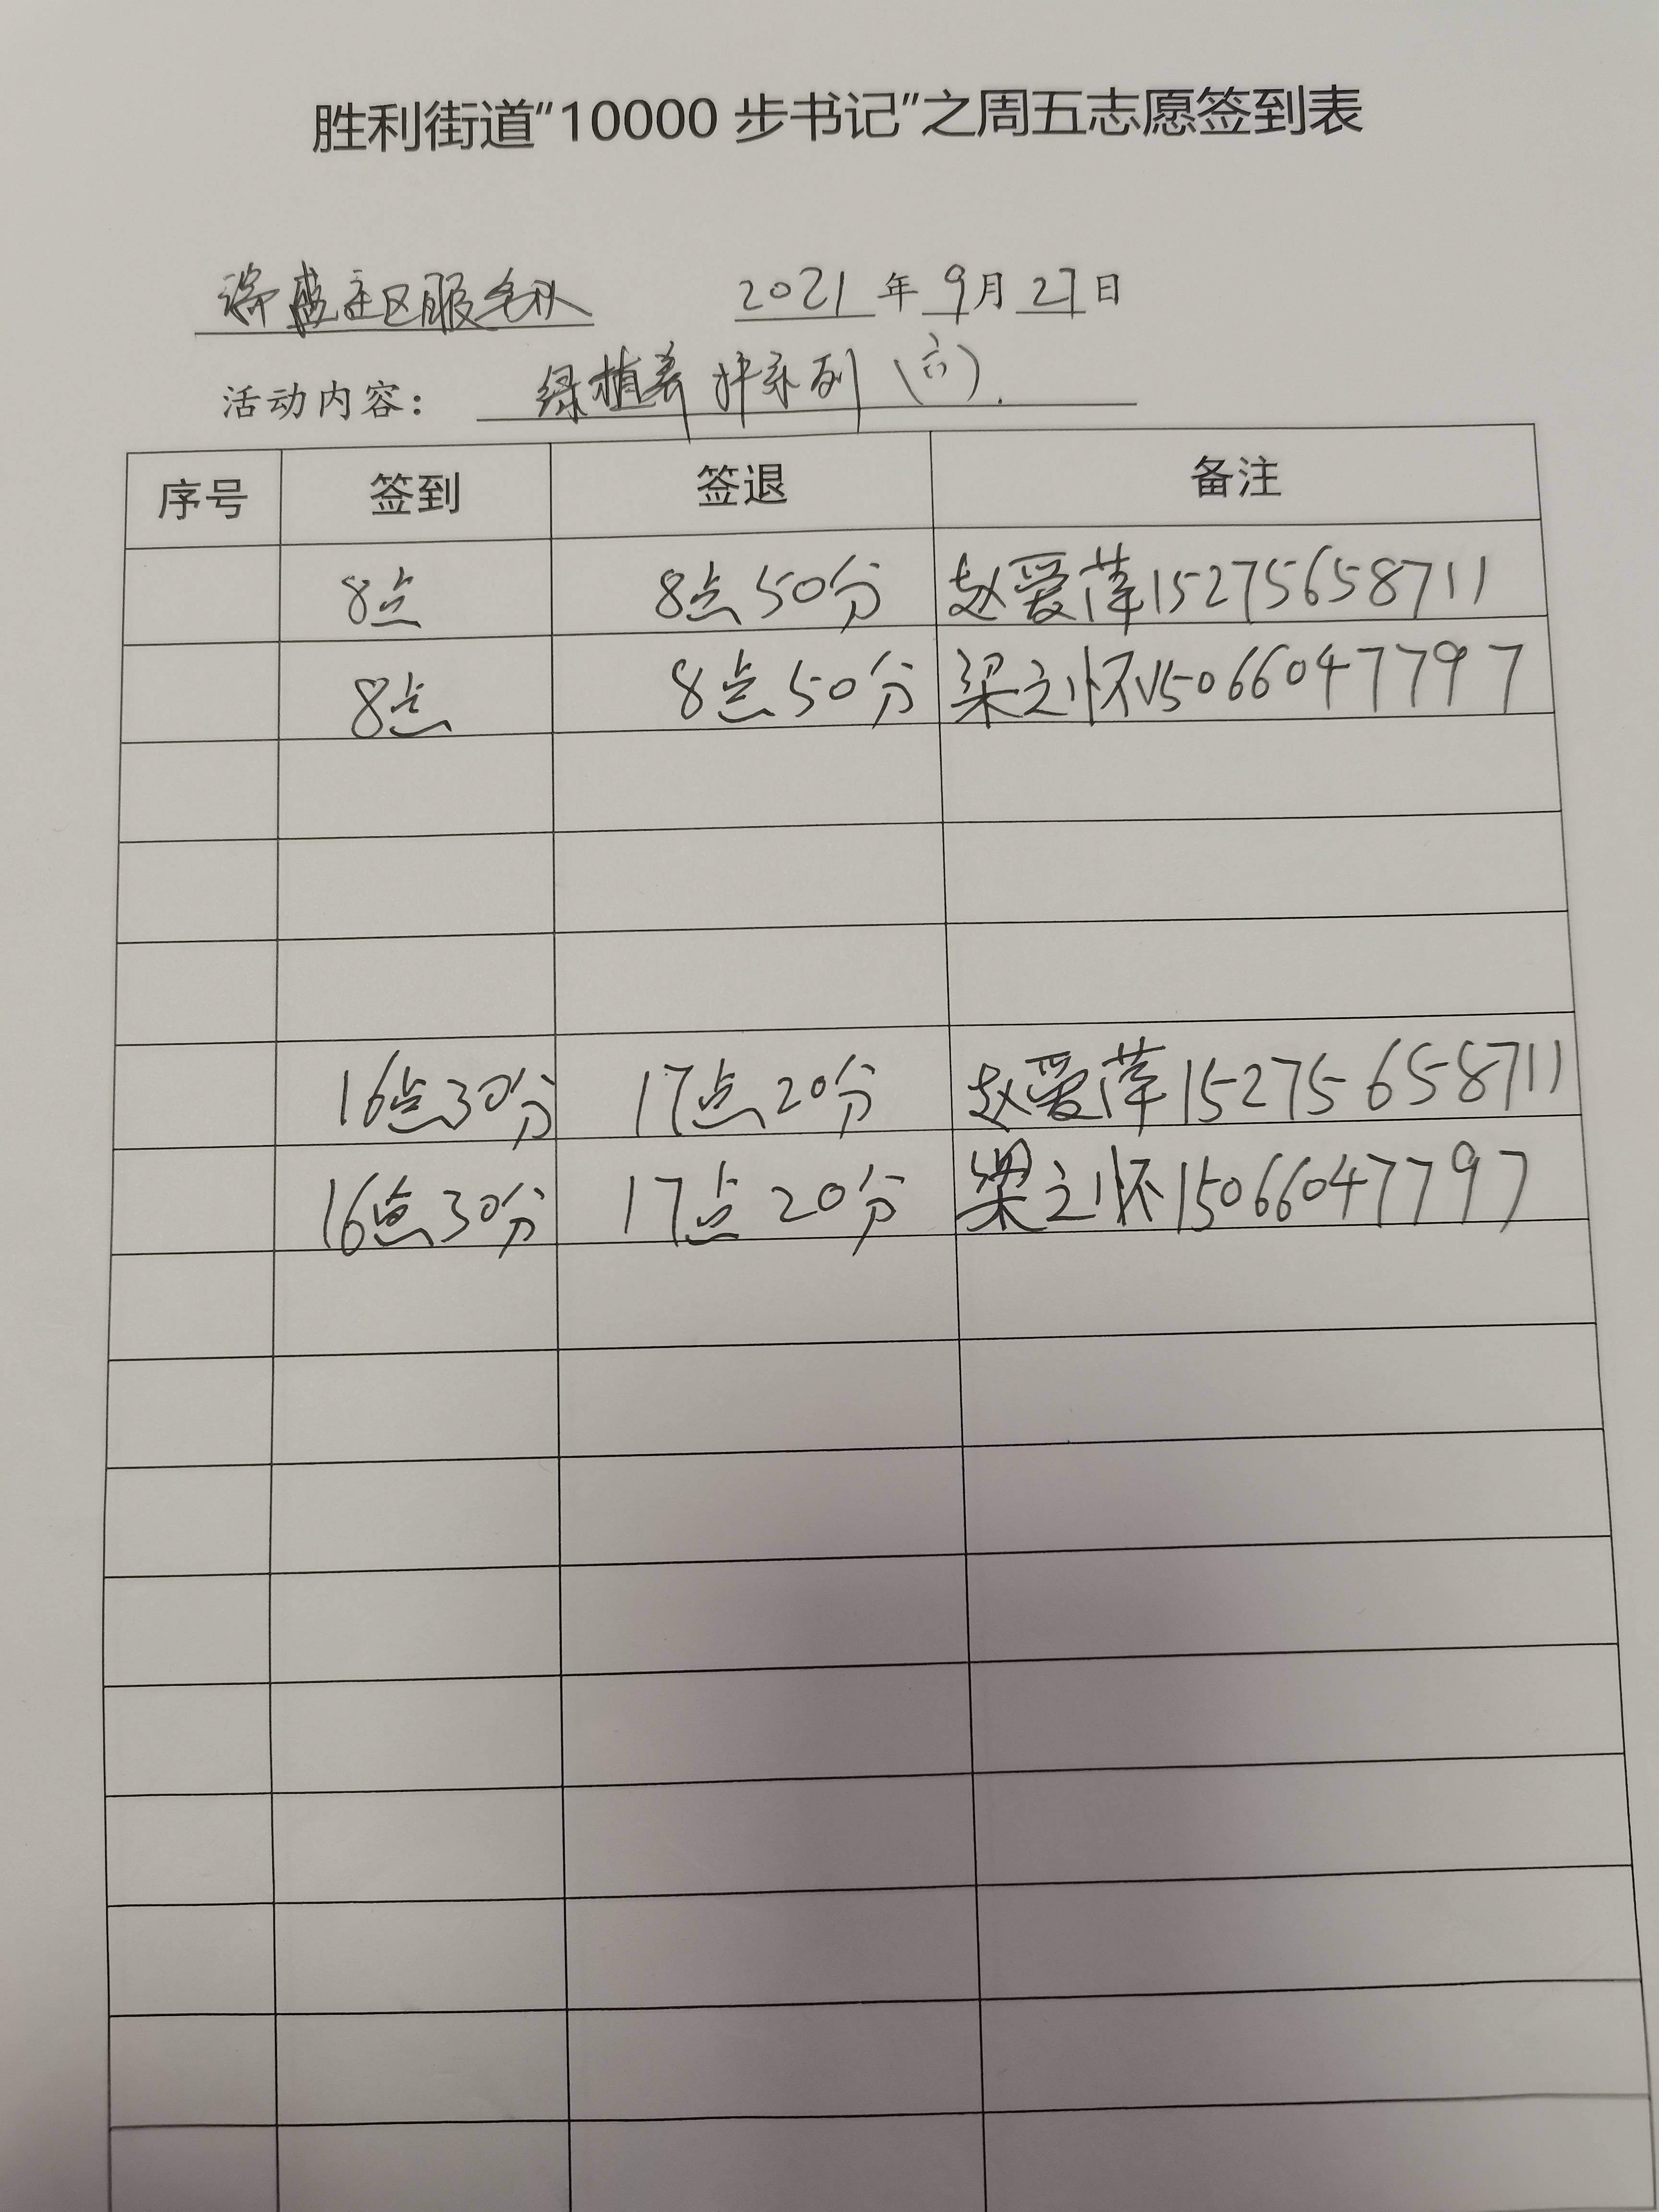 胜利街道“10000 步书记”之周五志愿签到表
社区服务队 2021 年 9 月 27 日
活动内容： 绿植养护系列（六）.
序号 签到 签退 备注
8点 8点50分 赵爱萍15275658711
8点 8点50分 梁之怀15066047797
16点30分 17点20分 赵爱萍15275658711
16点30分 17点20分 梁之怀15066047797